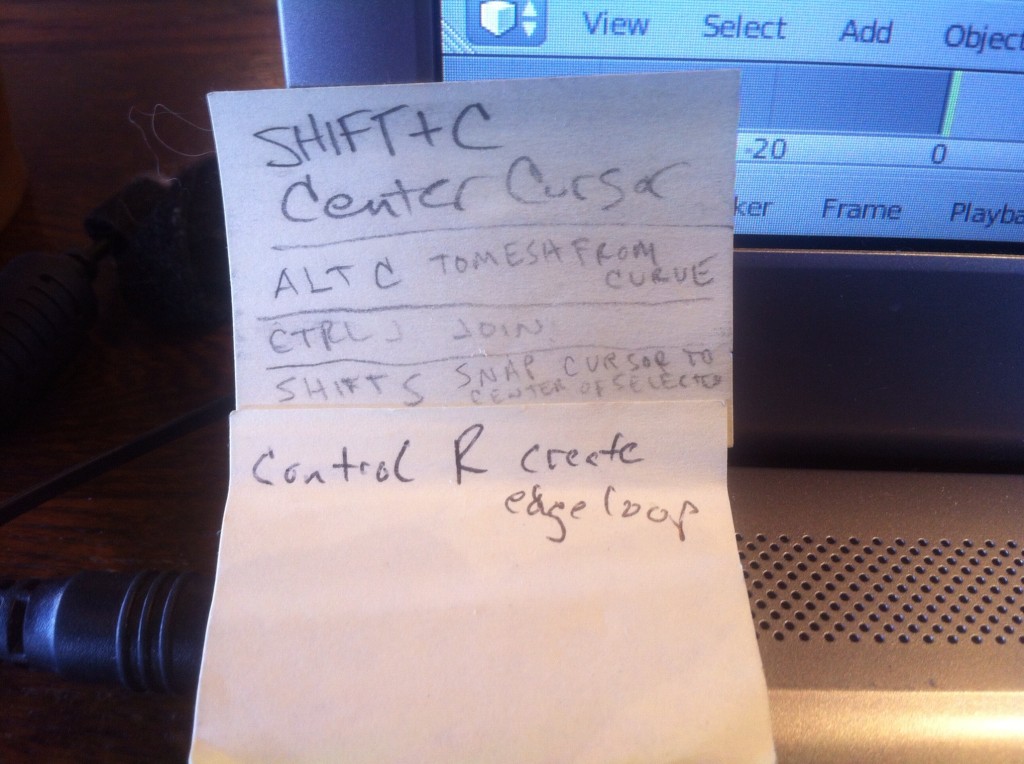 View Select Add Object
-20 0
ker Frame Playba
SHIFT+C
Center Cursor
ALT C TO MESH FROM
CURVE
CTRL J JOIN
SHIFT S SNAP CURSOR TO
CENTER OF SELECTED
Control R create
edge loop